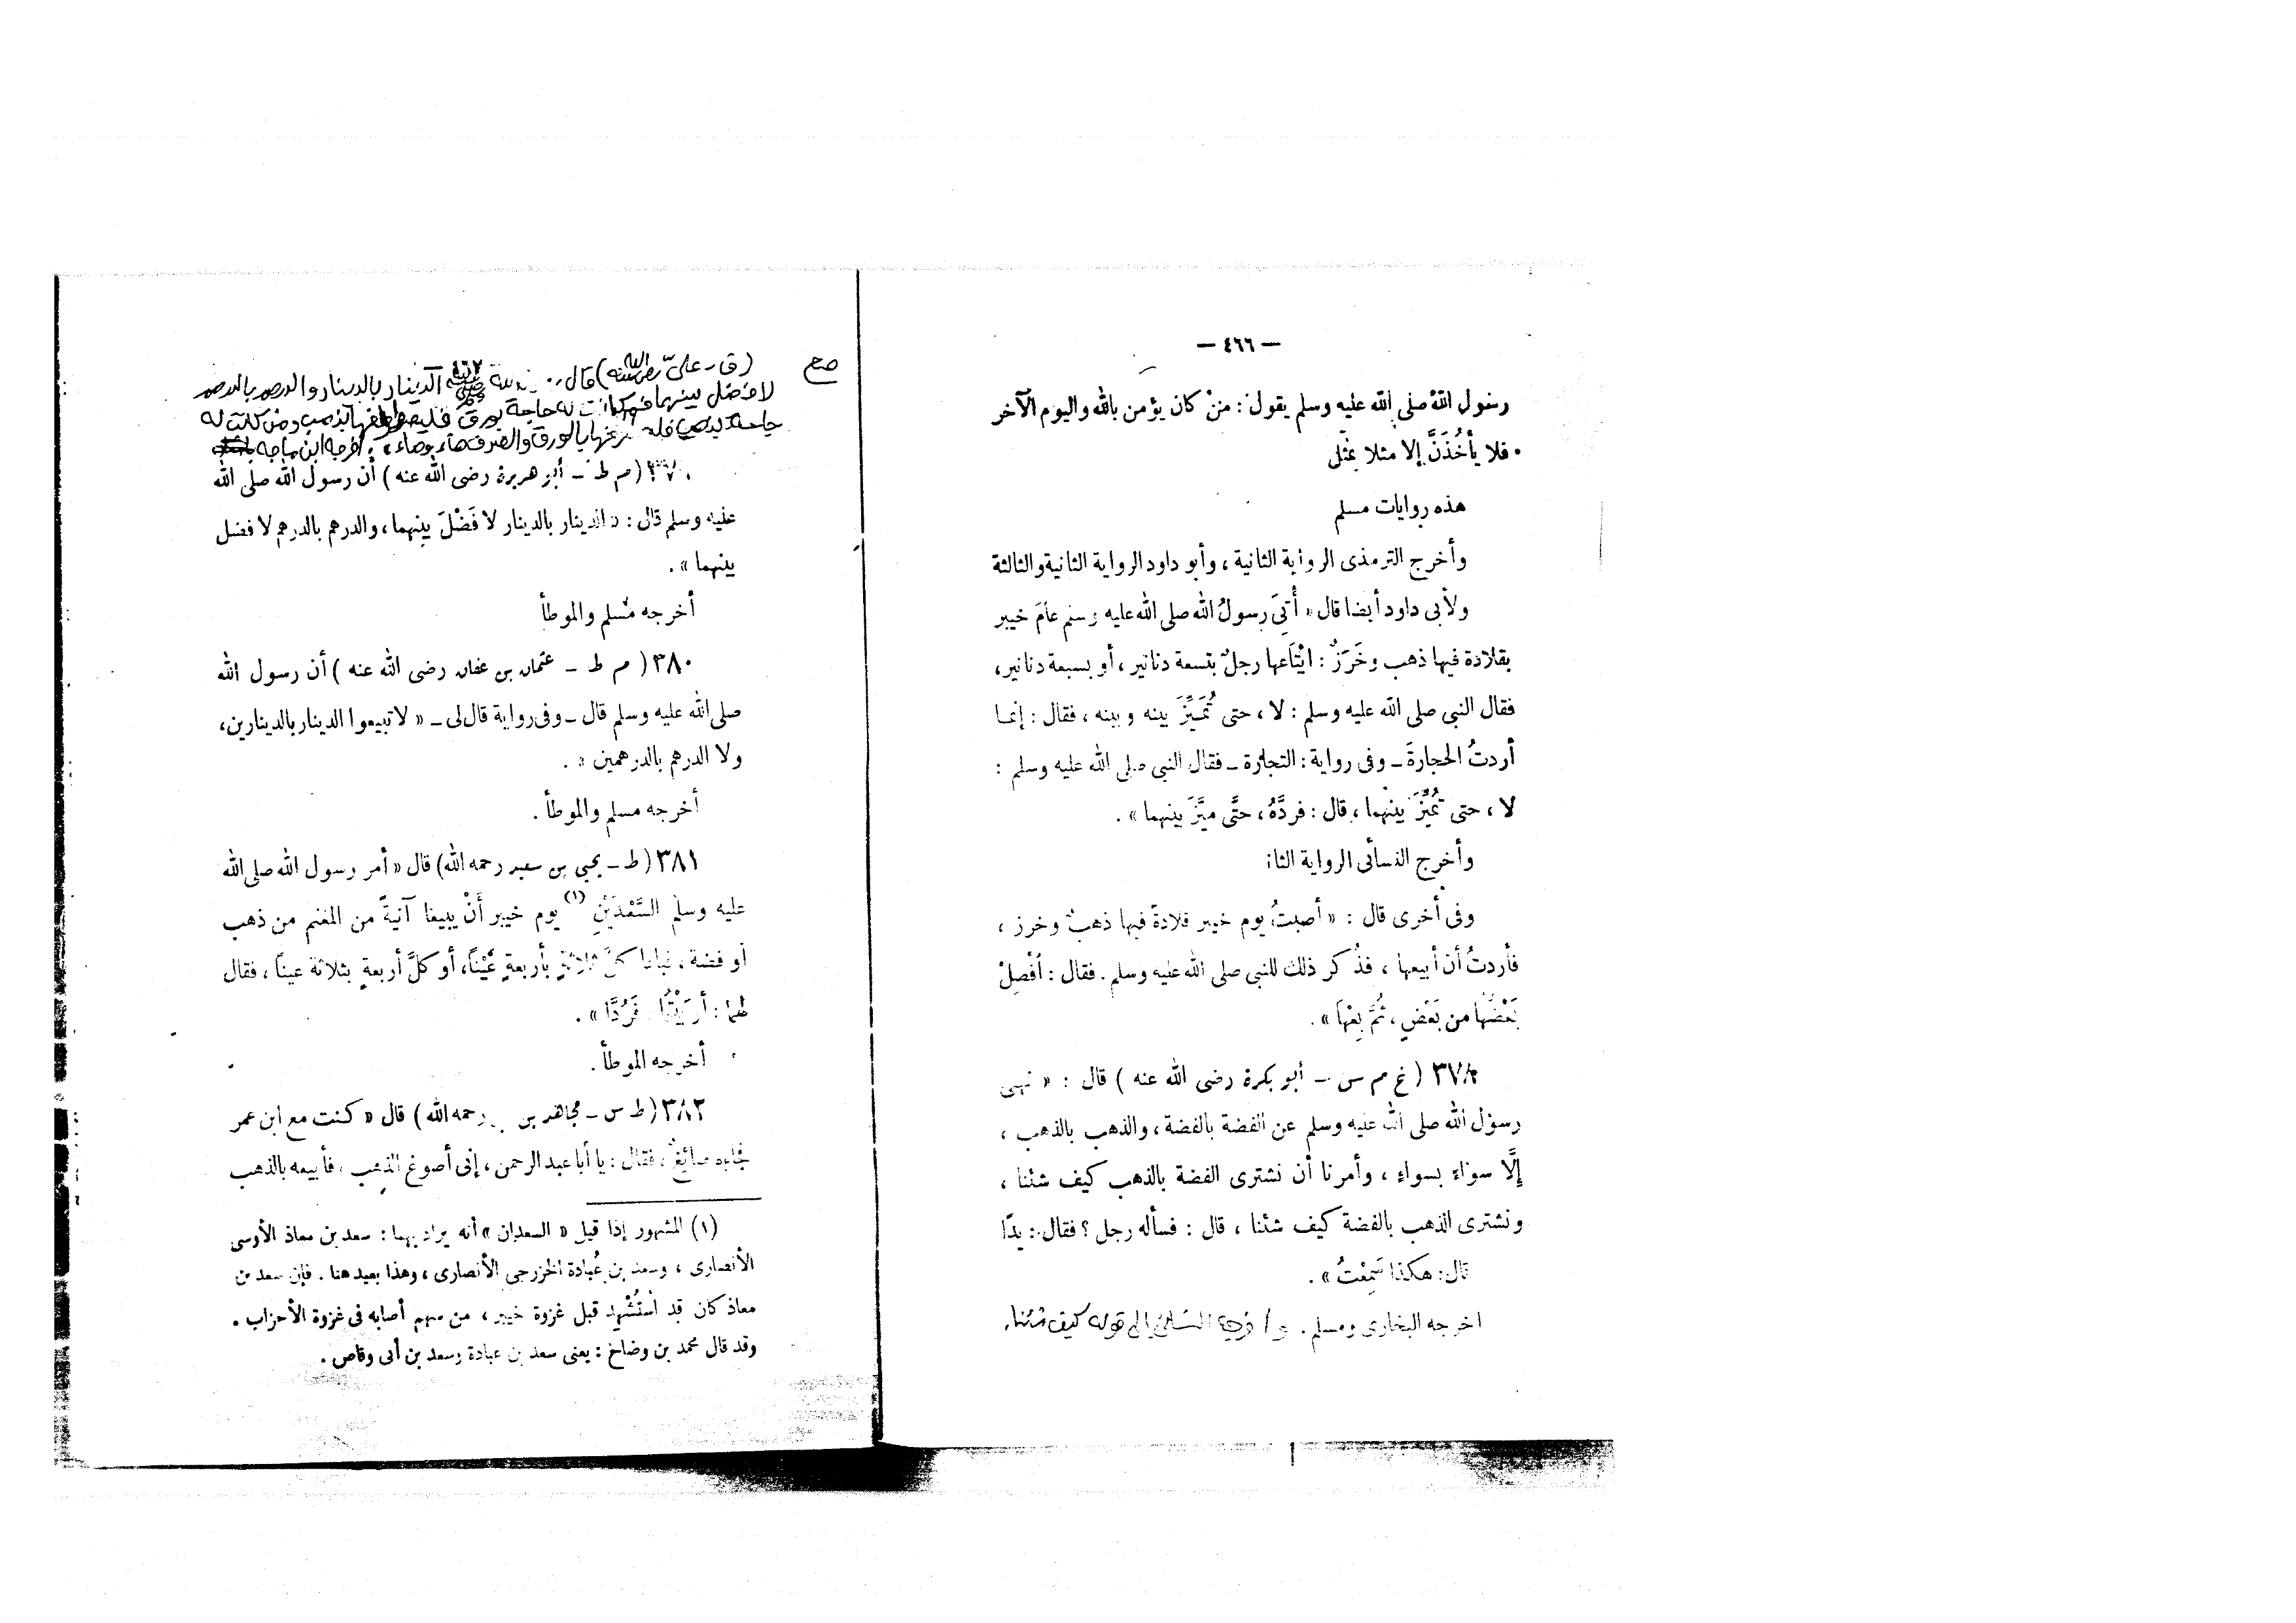 — ٤٦٦ —
رسول اللهُ صلى الله عليه وسلم يقول : منْ كان يؤمن بالله واليوم الآخر
فلا يأخُذَنَّ إلا مثلا بمثل
هذه روايات مسلم
وأخرج الترمذى الرواية الثانية ، وأبو داود الرواية الثانية والثالثة
ولأبى داود أيضا قال « أُتِىَ رسولُ الله صلى الله عليه وسلم عامَ خيبر
بقلادة فيها ذهب وخَرَزٌ : ابْتَاعها رجلٌ بتسعة دنانير ، أو بسبعة دنانير ،
فقال النبى صلى الله عليه وسلم : لا ، حتى تُمَيِّزَ بينه وبينه ، فقال : إنما
أردتُ الحجارةَ ـ وفى رواية : التجارة ـ فقال النبى صلى الله عليه وسلم :
لا ، حتى تُمَيِّزَ بينهما ، قال : فردَّهُ ، حتَّى ميَّزَ بينهما » .
وأخرج النسائى الرواية
وفى أخرى قال : « أصبتُ يوم خيبر قلادةً فيها ذهبٌ وخرز ،
فأردتُ أن أبيعها ، فذُكر ذلك للنبى صلى الله عليه وسلم . فقال : افْصِلْ
بَعْضَها من بَعْضٍ ، ثُمَّ بِعْهَا » .
٣٧٨ ( خ م س ـ أبو بكرة رضى الله عنه ) قال : « نهى
رسول الله صلى الله عليه وسلم عن الفضة بالفضة ، والذهب بالذهب ،
إلَّا سواءً بسواءٍ ، وأمرنا أن نشترى الفضة بالذهب كيف شئنا ،
ونشترى الذهب بالفضة كيف شئنا ، قال : فسأله رجل ؟ فقال : يدًا
قال : هكذا سَمِعْتُ » .
اخرجه البخارى ومسلم . وأخرجه النسائى إلى قوله كيف شئنا .
صح
٤٦٧
( ق ـ علىّ رضى الله عنه ) قال الدينار بالدينار والدرهم بالدرهم
لا فضل بينهما فمن كانت له حاجة بورق فليصطرفها بذهب ومن كانت له
حاجة بذهب بالورق والصرف هاء وهاء » . أخرجه ابن ماجه
( م ط ـ أبو هريرة رضى الله عنه ) أن رسول الله صلى الله
عليه وسلم قال : « الدينار بالدينار لا فَضْلَ بينهما ، والدرهم بالدرهم لا فضل
بينهما » .
أخرجه مسلم والموطأ
٣٨٠ ( م ط ـ عثمان بن عفان رضى الله عنه ) أن رسول الله
صلى الله عليه وسلم قال ـ وفى رواية قال لى ـ « لا تبيعوا الدينار بالدينارين ،
ولا الدرهم بالدرهمين » .
أخرجه مسلم والموطأ .
٣٨١ ( ط ـ يحيى بن سعيد رحمه الله ) قال « أمر رسول الله صلى الله
عليه وسلم السَّعْدَيْنِ (١) يوم خيبر أَنْ يبيعا آنيةً من المغنم من ذهب
أو فضة ، فباعا كلَّ ثلاثةٍ بأربعةٍ عَيْناً ، أو كلَّ أربعةٍ بثلاثة عيناً ، فقال
لهما : أربَيْتُما فَرُدَّا » .
أخرجه الموطأ .
٣٨٢ ( ط س ـ مجاهد بن رحمه الله ) قال « كنت مع ابن عمر
فجاءه صائغٌ ، فقال : يا أبا عبد الرحمن ، إنى أصوغ الذهب ، فأبيعه بالذهب
(١) المشهور إذا قيل « السعدان » أنه يراد بهما : سعد بن معاذ الأوسى
الأنصارى ، وسعد بن عُبادة الخزرجى الأنصارى ، وهذا بعيد هنا . فإن سعد بن
معاذ كان قد اسْتُشْهِد قبل غزوة خيبر ، من سهم أصابه فى غزوة الأحزاب .
وقد قال محمد بن وضاح : يعنى سعد بن عبادة وسعد بن أبى وقاص .